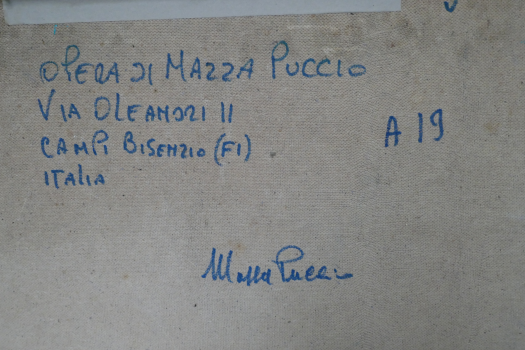 OPERA DI MAZZA PUCCIO
VIA OLEANDRI 11
CAMPI BISENZIO (FI)
A 19
ITALIA
Mazza Puccio